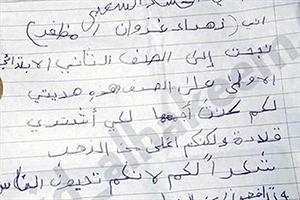 الحشد الشعبي
اني (زهراء غزوان مظفر)
نجحت إلى الصف الثاني الابتدائي
الاولى على الصف هذه هديتي
لكم كنت أجمعها لكي أشتري
قلادة ولكنكم اغلى من الذهب
شكراً لكم لانكم تحبون الناس